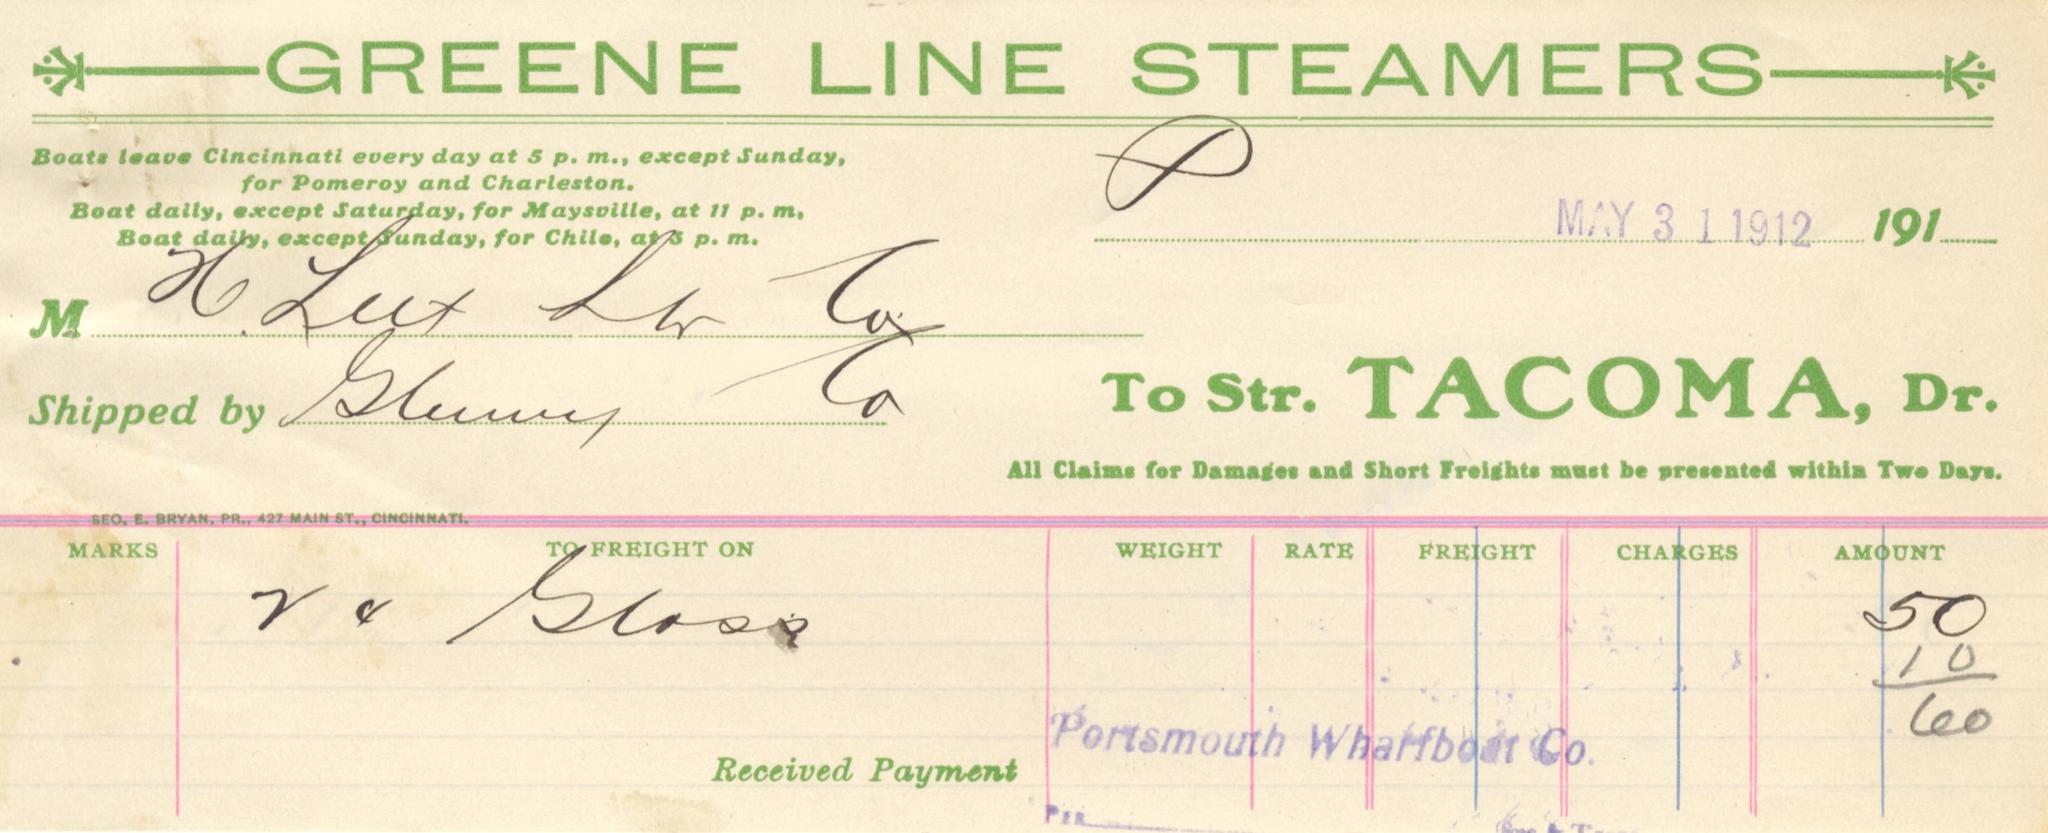 GREENE LINE STEAMERS
Boats leave Cincinnati every day at 5 p. m., except Sunday,
for Pomeroy and Charleston.
Boat daily, except Saturday, for Maysville, at 11 p. m,
Boat daily, except Sunday, for Chilo, at 3 p. m.
P
MAY 31 1912 191
M H. Leet Lbr Co.
Shipped by Glenny Co
To Str. TACOMA, Dr.
All Claims for Damages and Short Freights must be presented within Two Days.
GEO. E. BRYAN, PR., 427 MAIN ST., CINCINNATI.
MARKS TO FREIGHT ON WEIGHT RATE FREIGHT CHARGES AMOUNT
Glass 50
10
60
Portsmouth Wharfboat Co.
Received Payment
PER